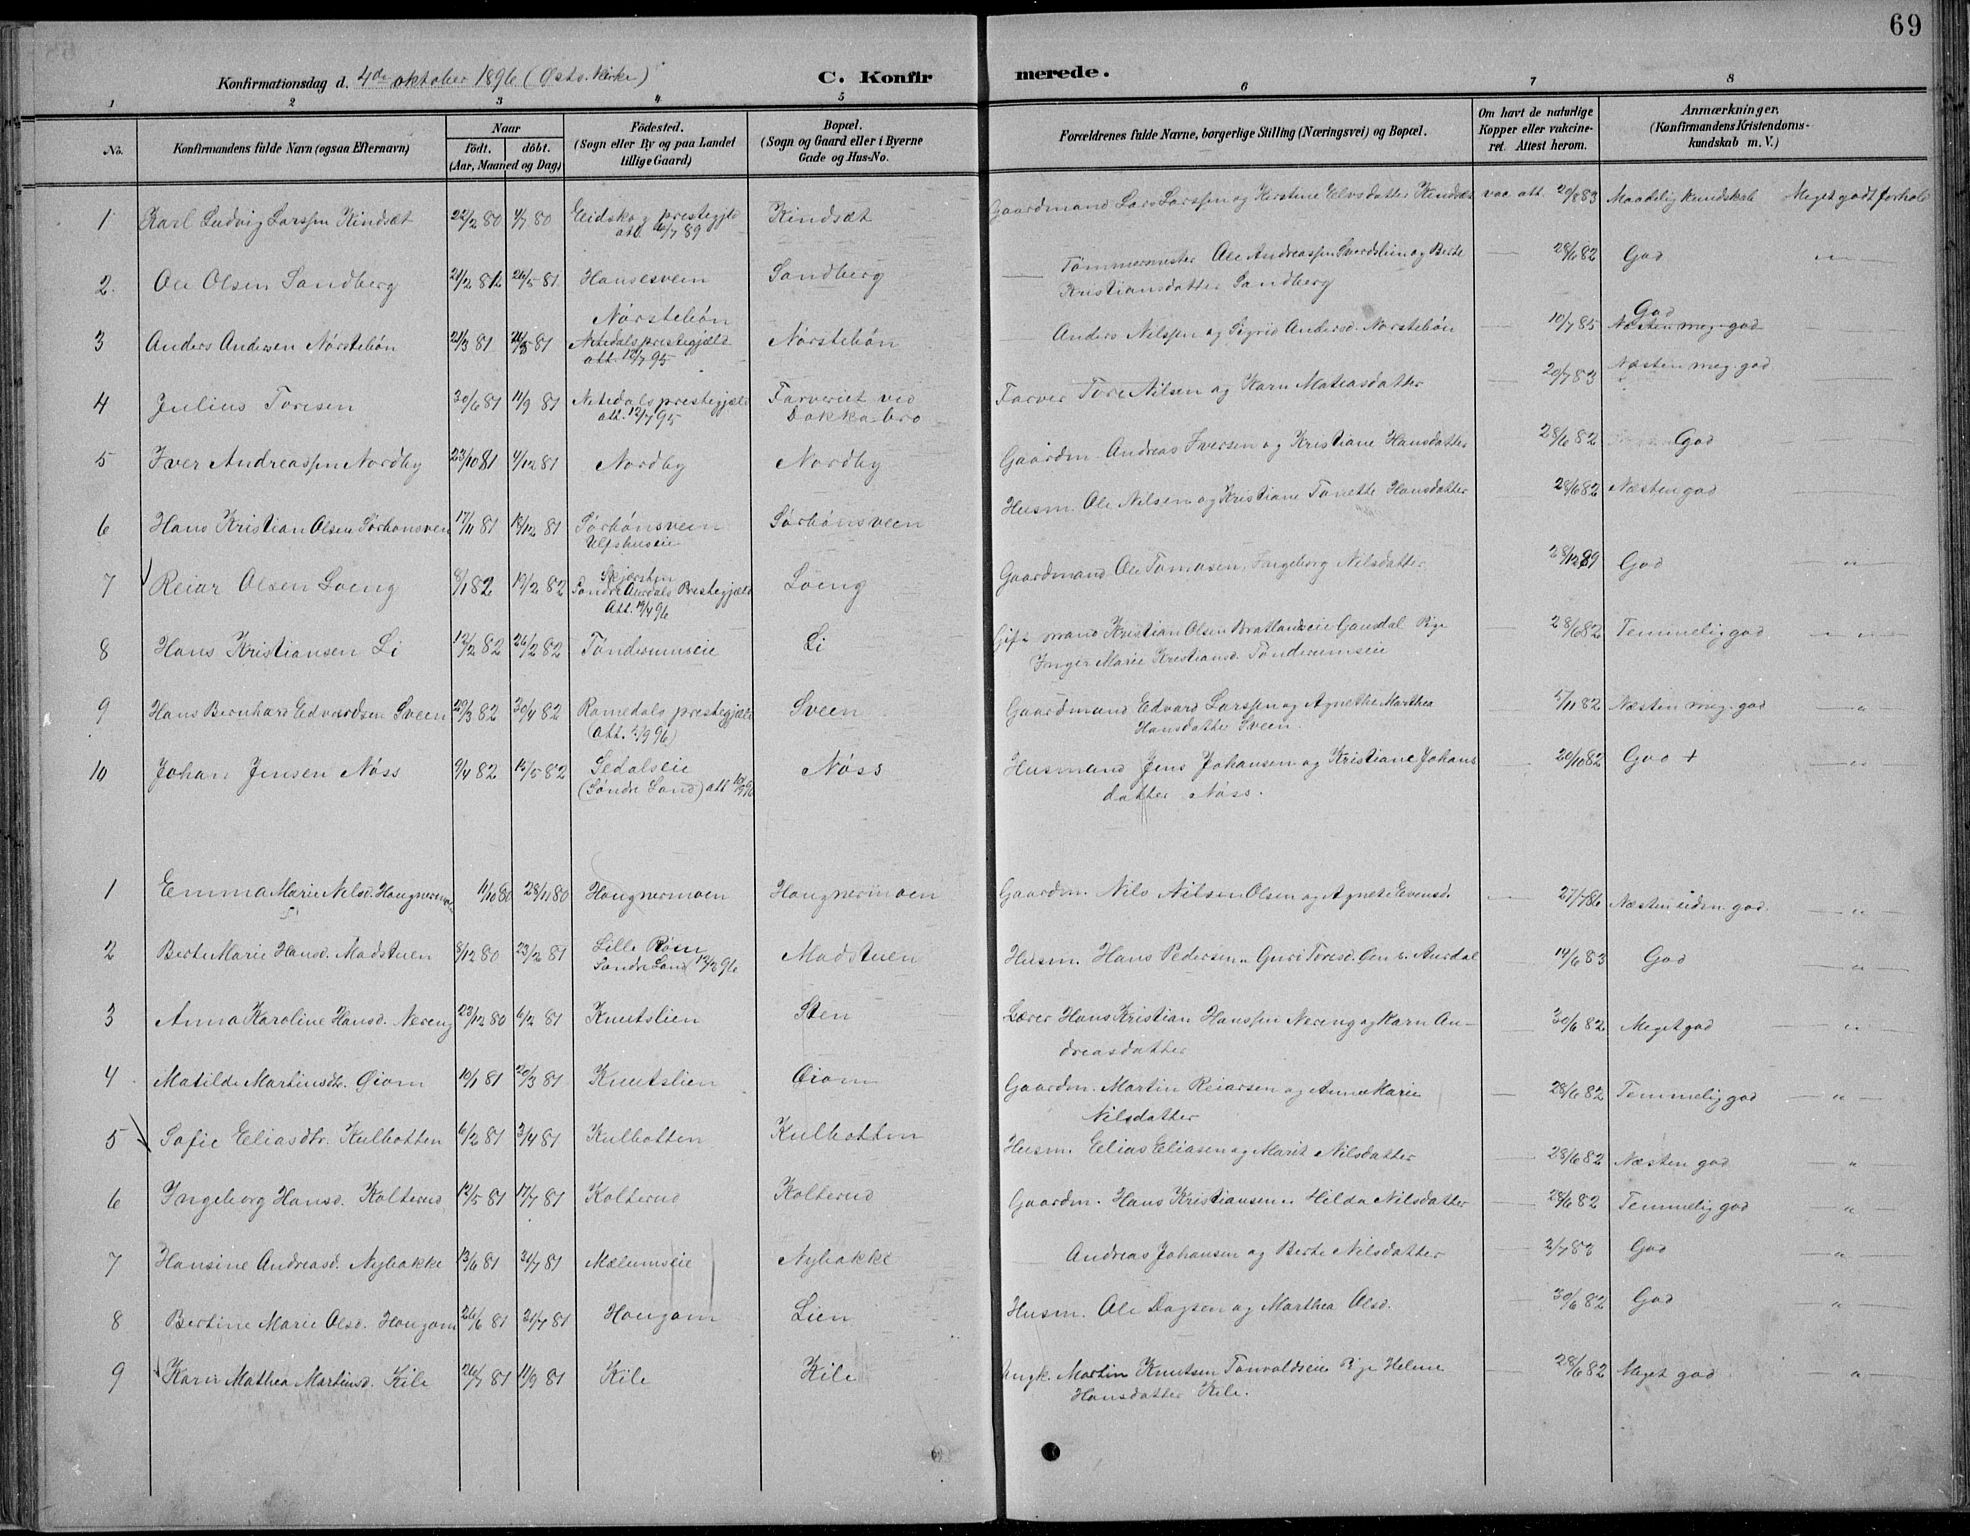 69
Konfirmationsdag d. 4de oktober 1896 (Østs. Kirke)
C. Konfirmerede.
1 2 3 4 5 6 7 8
No.
Konfirmandens fulde Navn (ogsaa Efternavn)
Naar
födt. döbt.
(Aar, Maaned og Dag)
Födested.
(Sogn eller By og paa Landet
tillige Gaard)
Bopæl.
(Sogn og Gaard eller i Byerne
Gade og Hus-No.
Forældrenes fulde Navne, borgerlige Stilling (Næringsvei) og Bopæl.
Om havt de naturlige
Kopper eller vakcine-
ret. Attest herom.
Anmærkninger.
(Konfirmandens Kristendoms-
kundskab m. V.)
1 Karl Ludvig Larssen Kindsæt 22/2 80 4/7 80 Eidskog prestegjeld Kindsæt Gaardmand Lars Larssen og Kirstine Elvsdatter Kindsæt vac att. 20/8 83 Maadelig kundskab Meget godt forhold
att. /7 89
2. Ole Olsen Sandberg 21/2 81 26/5 81 Hansesveen Sandberg Tømmermester Ole Andreassen Sverdslien og Berte 28/6 82 God
Kristiansdatter Sandberg
3 Anders Andersen Nørstebøn 21/3 81 81 Nørstebøn Nørstebøn Anders Nilssen og Sigrid Andersd. Nørstebøn 10/7 85 God
Næsten meg. god
prestegjæld
att. 12/7 95
4 Julius Toresen 30/6 81 11/9 81 prestegjæld Farveriet ved Farver Tore Nilsen og Karn Mateasdatter 20/7 83 Næsten meg. god
att. 12/7 95 Dokka bro
5 Iver Andreassen Nordby 23/10 81 4/12 81 Nordby Nordby Gaardm. Andreas Iversen og Kristiane Hansdatter 28/6 82 God
6 Hans Kristian Olsen Sørhønsveen 17/11 81 18/12 81 Sørhønsveen Sørhønsveen Husm. Ole Nilsen og Kristiane Tonette Hansdatter 28/6 82 Næsten god
Ulfshuseie
7 Reiar Olsen Loeng 8/1 82 19/2 82 Skjerstin Loeng Gaardmand Ole Tomasen, Ingeborg Nilsdatter 28/12 89 God
Søndre Aurdals Prestegjæld
Att. /4 96
8 Hans Kristiansen Li 12/2 82 26/2 82 Tønderumseie Li Gift mand Kristian Olsen Bratlandseie Gausdal Pige 28/6 82 Temmelig god
Inger Marie Kristiansd. Tønderumseie
9 Hans Bernhard Edvardsen Sveen 29/3 82 30/4 82 Romedals prestegjæld Sveen Gaardmand Edvard Larssen og Agnethe Marthea 5/11 82 Næsten meg. god
(att. 2/9 96) Hansdatter Sveen
10 Johan Jensen Nøss 9/4 82 /5 82 Sedalseie Nøss Husmand Jens Johansen og Kristiane Johans 20/10 82 God +
(Søndre Land) att datter Nøss.
1 Emma Marie Nilsd. Haugnermoen 11/10 80 28/11 80 Haugnermoen Haugnermoen Gaardm. Nils Nilsen Olsen og Agnete Evensd. 27/7 86 Næsten uden. god.
2 Berte Marie Hansd. Madstuen 8/12 80 23/2 81 Lille Røen Madstuen Husm. Hans Pedersen „ Guri Toresd. Aurdal 14/6 83 God
Søndre Land 96
3 Anna Karoline Hansd. Nereng 29/12 80 6/2 81 Knutslien Sten Lærer Hans Kristian Hanssen Nereng og Karn An- 30/6 82 Meget god
dreasdatter
4 Matilde Martinsdtr. Øiom 10/1 81 20/3 81 Knutslien Øiom Gaardm. Martin Reiarsen og Anne Marie 28/6 82 Temmelig god
Nilsdatter
5 Sofie Eliasdtr. Kulhotten 6/2 81 3/4 81 Kulhotten Kulhotten Husm. Elias Eliasen og Marit Nilsdatter 28/6 82 Næsten god
6 Ingeborg Hansd. Kolterud 12/5 81 17/7 81 Kolterud Kolterud Gaardm. Hans Kristiansen „ Hilda Nilsdatter 28/6 82 Temmelig god
7 Hansine Andreasd. Nybakke 13/6 81 31/7 81 Mælumseie Nybakke Andreas Johansen og Berte Nilsdatter 2/7 83 God
8 Bertine Marie Olsd. Haugom 26/6 81 31/7 81 Haugom Lien Husm. Ole Dagsen og Marthea Olsd. 30/6 82 God
9 Karn Mathea Martinsd. Kile 26/7 81 11/9 81 Kile Kile Ungk. Martin Knutsen Tonvoldseie Pige Helene 28/6 82 Meget god
Hansdatter Kile.